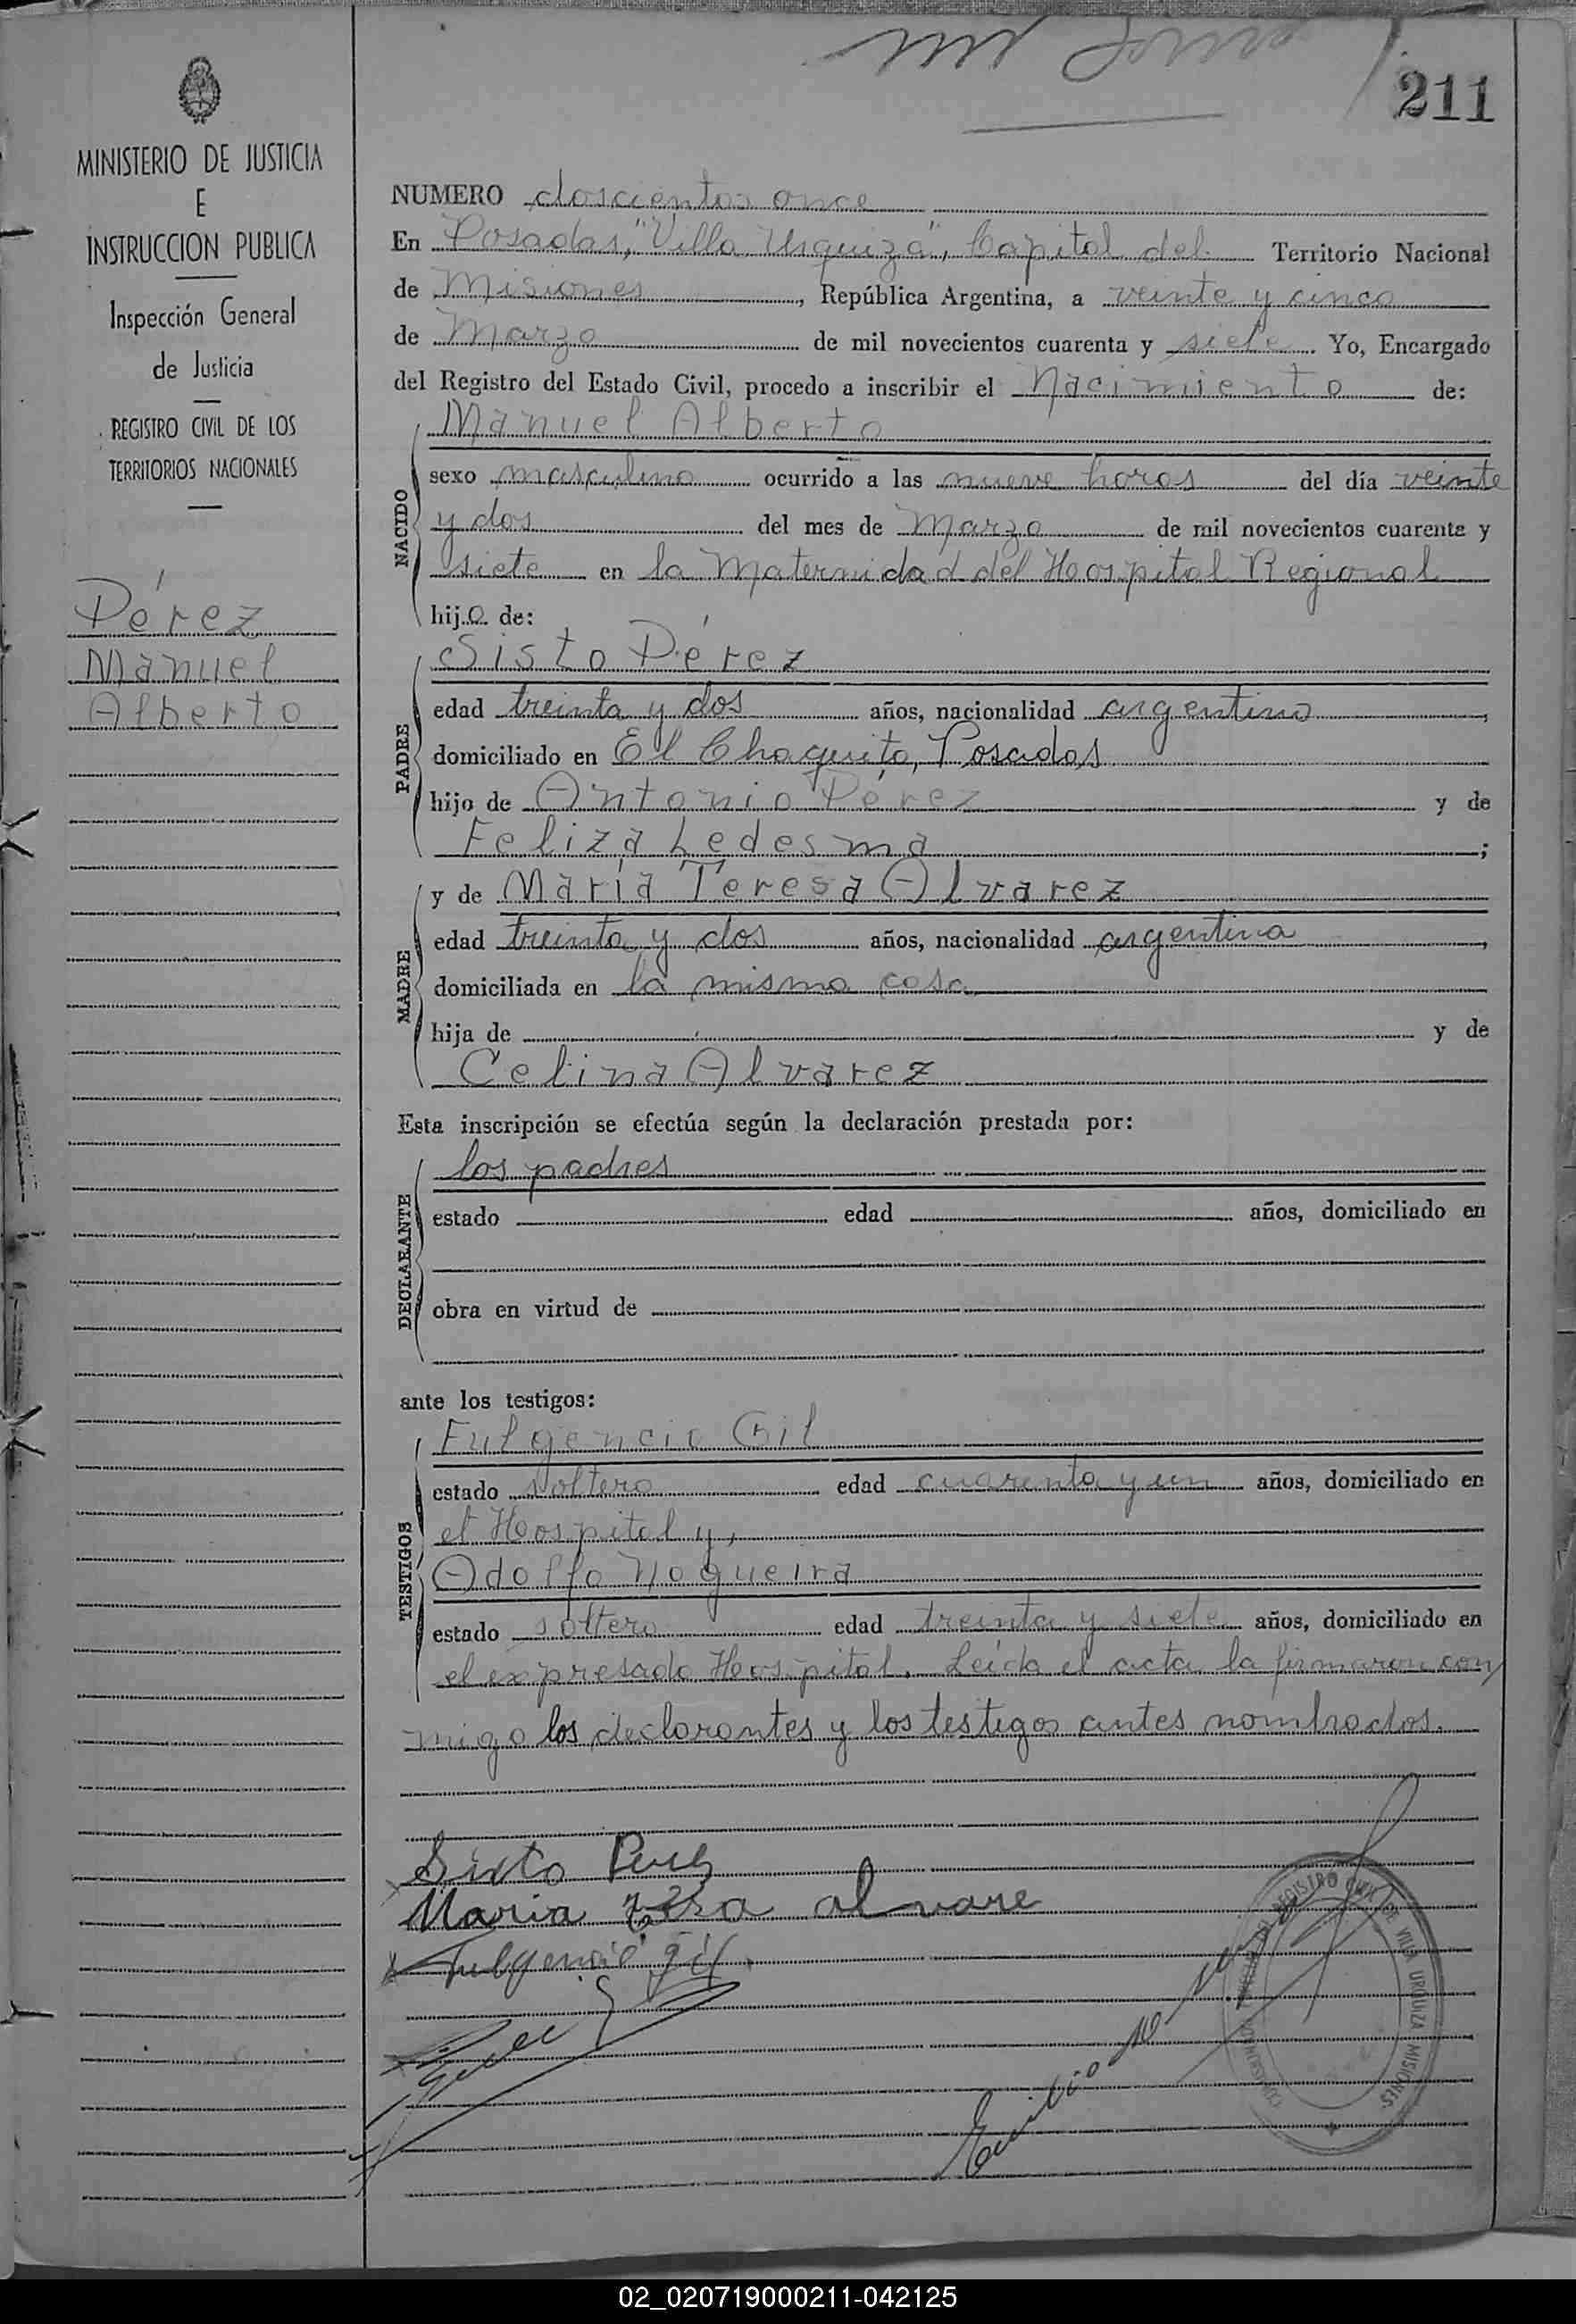 211
MINISTERIO DE JUSTICIA
E
INSTRUCCION PUBLICA
Inspección General
de Justicia
REGISTRO CIVIL DE LOS
TERRITORIOS NACIONALES
Pérez
Manuel
Alberto
NUMERO doscientos once
En Posadas, "Villa Urquiza", Capital del Territorio Nacional
de Misiones, República Argentina, a veinte y cinco
de Marzo de mil novecientos cuarenta y siete. Yo, Encargado
del Registro del Estado Civil, procedo a inscribir el Nacimiento de:
Manuel Alberto
NACIDO
sexo masculino ocurrido a las nueve horas del día veinte
y dos del mes de Marzo de mil novecientos cuarenta y
siete en la Maternidad del Hospital Regional
hijo de:
Sisto Pérez
PADRE
edad treinta y dos años, nacionalidad argentino,
domiciliado en El Chaquito, Posadas
hijo de Antonio Pérez y de
Feliza Ledesma;
y de María Teresa Alvarez
MADRE
edad treinta y dos años, nacionalidad argentina,
domiciliada en la misma casa
hija de y de
Celina Alvarez
Esta inscripción se efectúa según la declaración prestada por:
los padres
DECLARANTE
estado edad años, domiciliado en
obra en virtud de
ante los testigos:
Fulgencio Gil
TESTIGOS
estado soltero edad cuarenta y un años, domiciliado en
el Hospital y,
Adolfo Nogueira
estado soltero edad treinta y siete años, domiciliado en
el expresado Hospital. Leída el acta la firmaron con
migo los declarantes y los testigos antes nombrados.
Sixto Perez
Maria alvare
Fulgencio gil
Emilio
REGISTRO CIVIL DE VILLA URQUIZA MISIONES
02_020719000211-042125